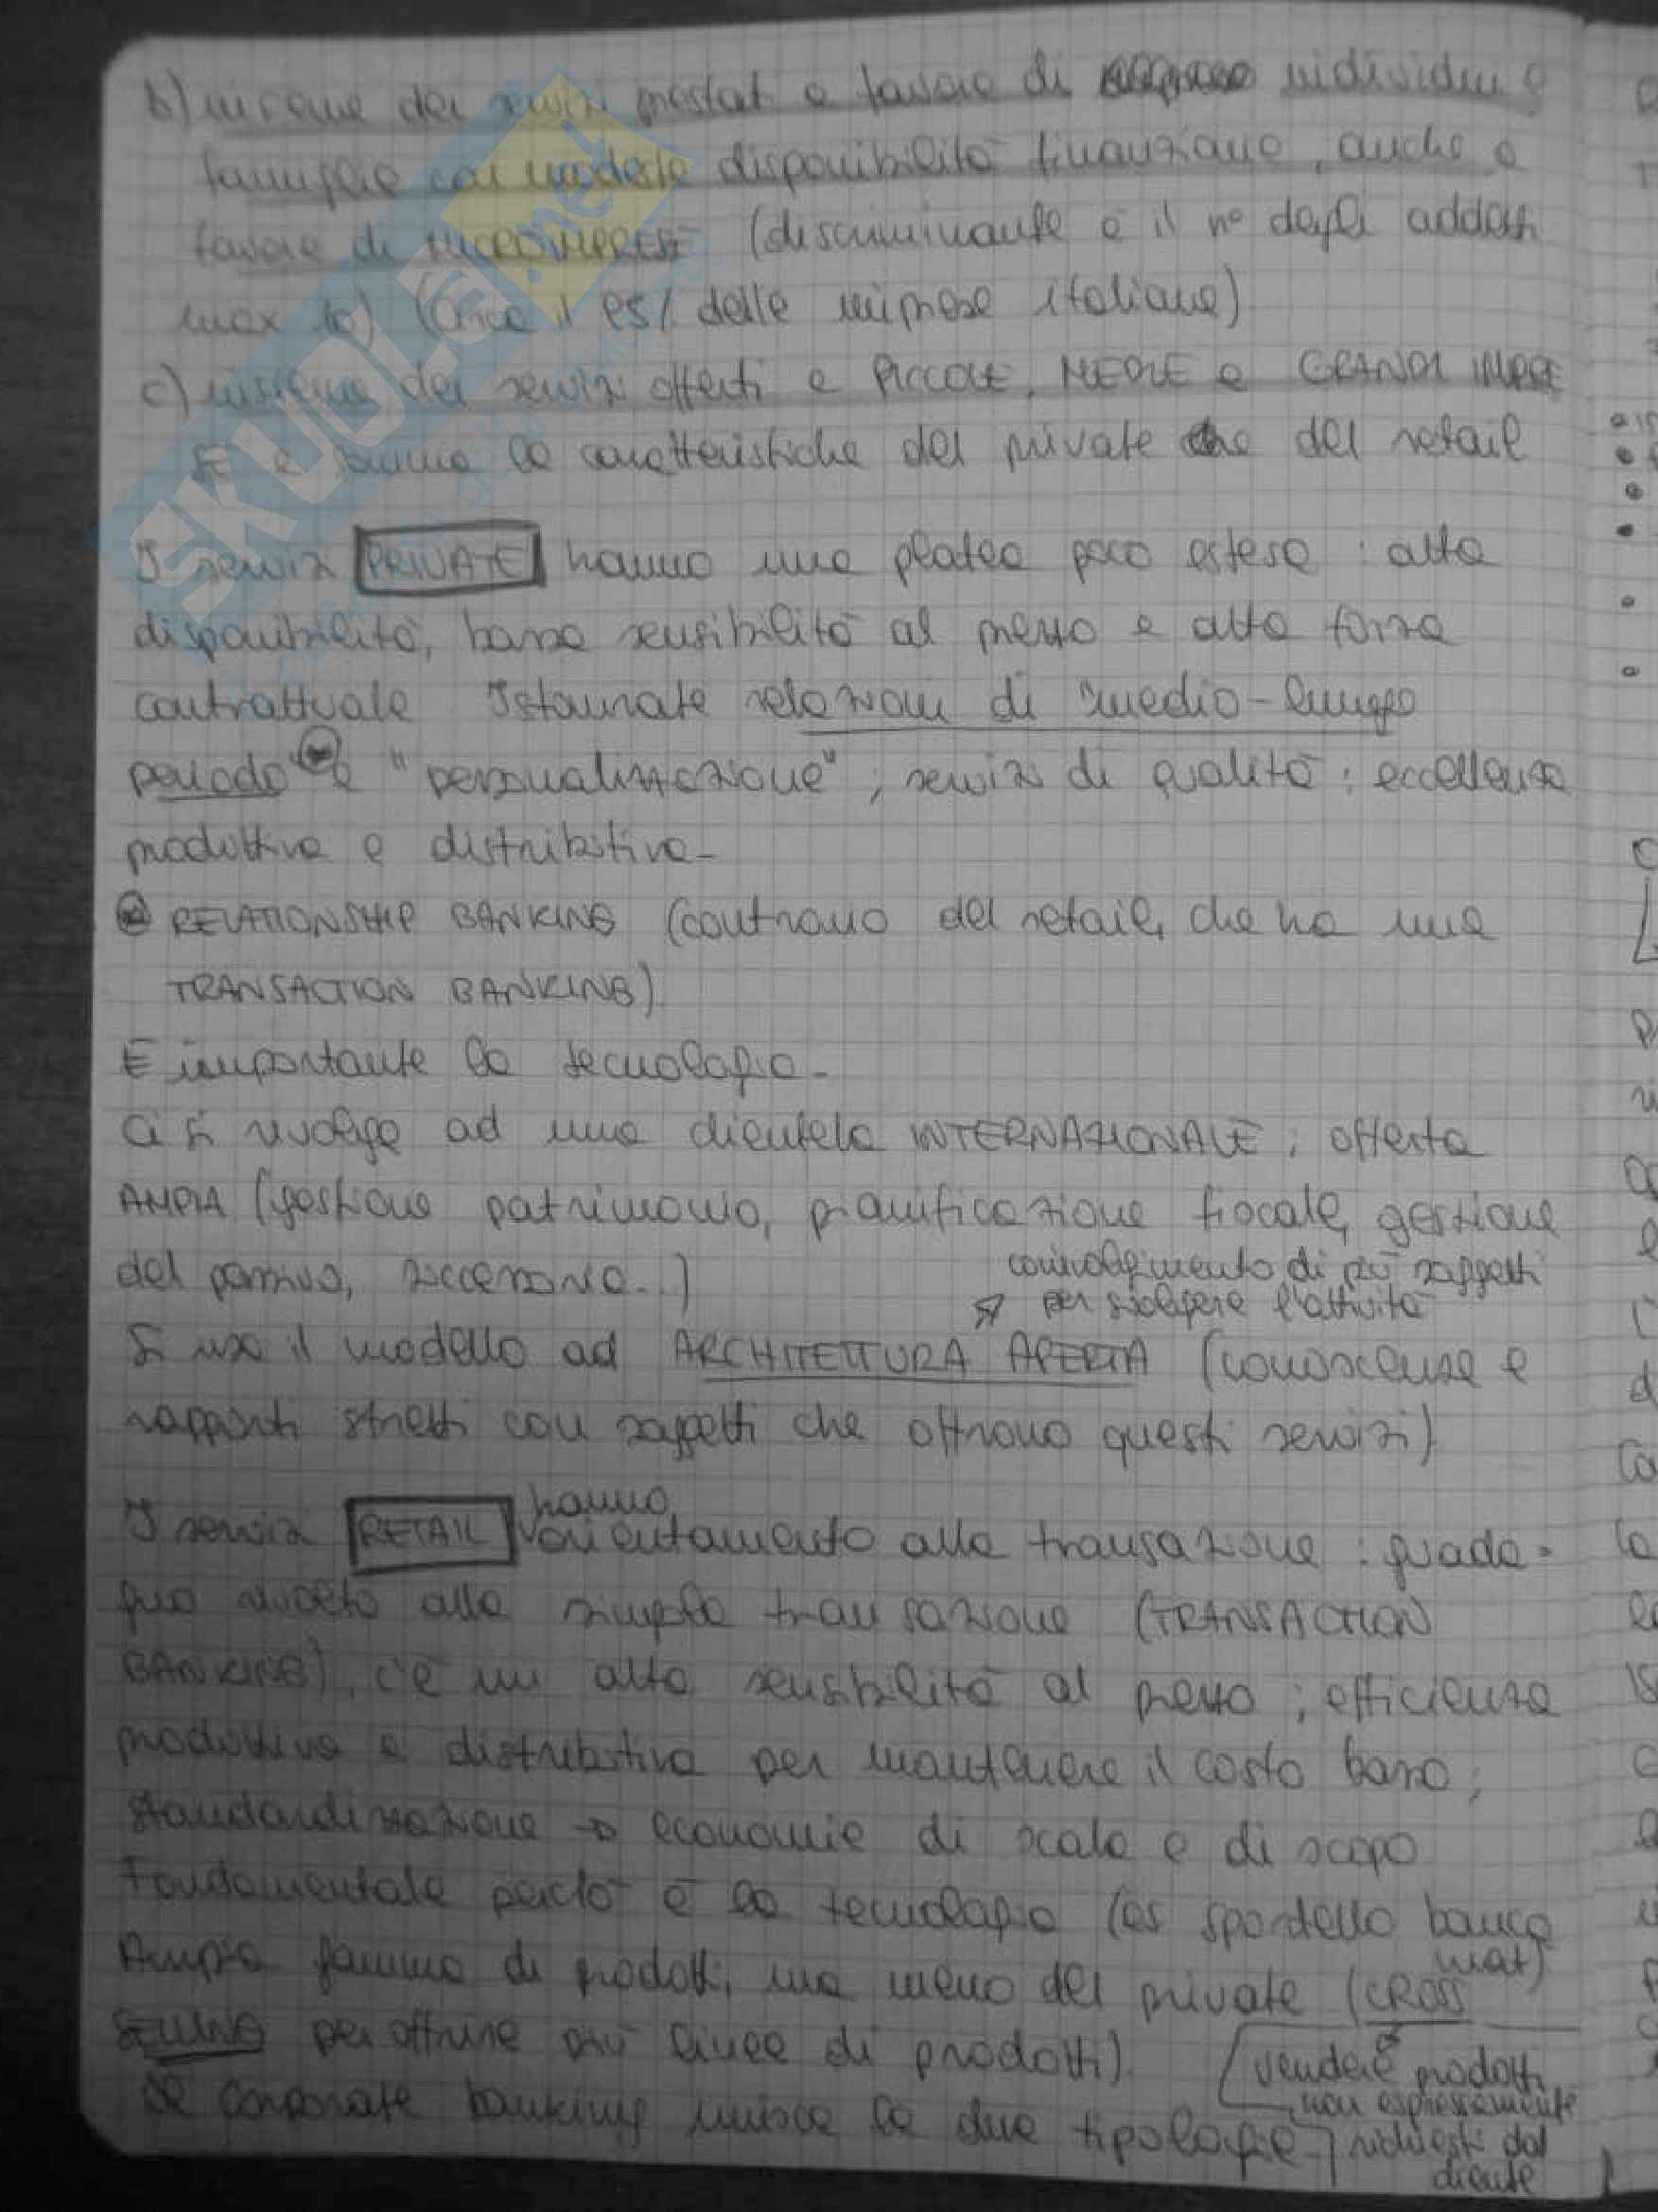 b) insieme dei servizi prestati a favore di individui e
famiglie con modeste disponibilità finanziarie, anche a
favore di MICROIMPRESE (discriminante è il n° degli addetti
max 10) (circa il 95% delle imprese italiane)
c) insieme dei servizi offerti a PICCOLE, MEDIE e GRANDI IMPRE
SE e somma le caratteristiche del private che del retail
I servizi PRIVATE hanno una platea poco estesa: alta
disponibilità, bassa sensibilità al prezzo e alta forza
contrattuale Istaurate relazioni di "medio-lungo
periodo" e "personalizzazione"; servizi di qualità: eccellenza
produttiva e distributiva-
RELATIONSHIP BANKING (contrario del retail, che ha una
TRANSACTION BANKING)
È importante la tecnologia-
Ci si rivolge ad una clientela INTERNAZIONALE; offerta
AMPIA (gestione patrimonio, pianificazione fiscale, gestione
del passivo, successorio..)
coinvolgimento di più soggetti
per svolgere l'attività
Si usa il modello ad ARCHITETTURA APERTA (conoscenze e
rapporti stretti con soggetti che offrono questi servizi)
hanno
I servizi RETAIL orientamento alla transazione: guada-
gno rivolto alla singola transazione (TRANSACTION
BANKING), c'è un alta sensibilità al prezzo; efficienza
produttiva e distributiva per mantenere il costo basso;
standardizzazione → economie di scala e di scopo
Fondamentale perciò è la tecnologia (es sportello banco
mat)
Ampia gamma di prodotti, ma meno del private (CROSS
SELLING per offrire più linee di prodotti).
vendere prodotti
non espressamente
richiesti dal
cliente
Il corporate banking unisce le due tipologie
SKUOLA.net